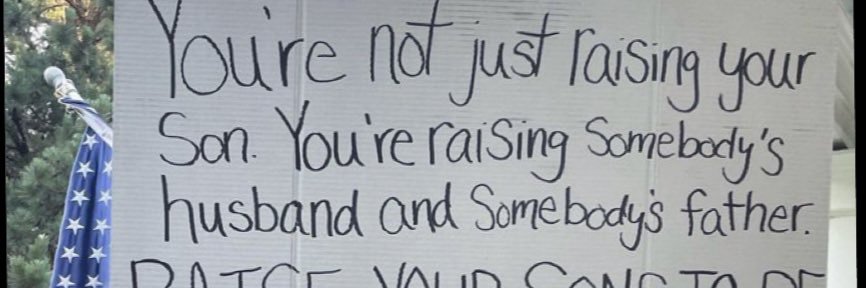 You're not just raising your
Son. You're raising Somebody's
husband and Somebody's father.
RAISE YOUR SONS TO BE